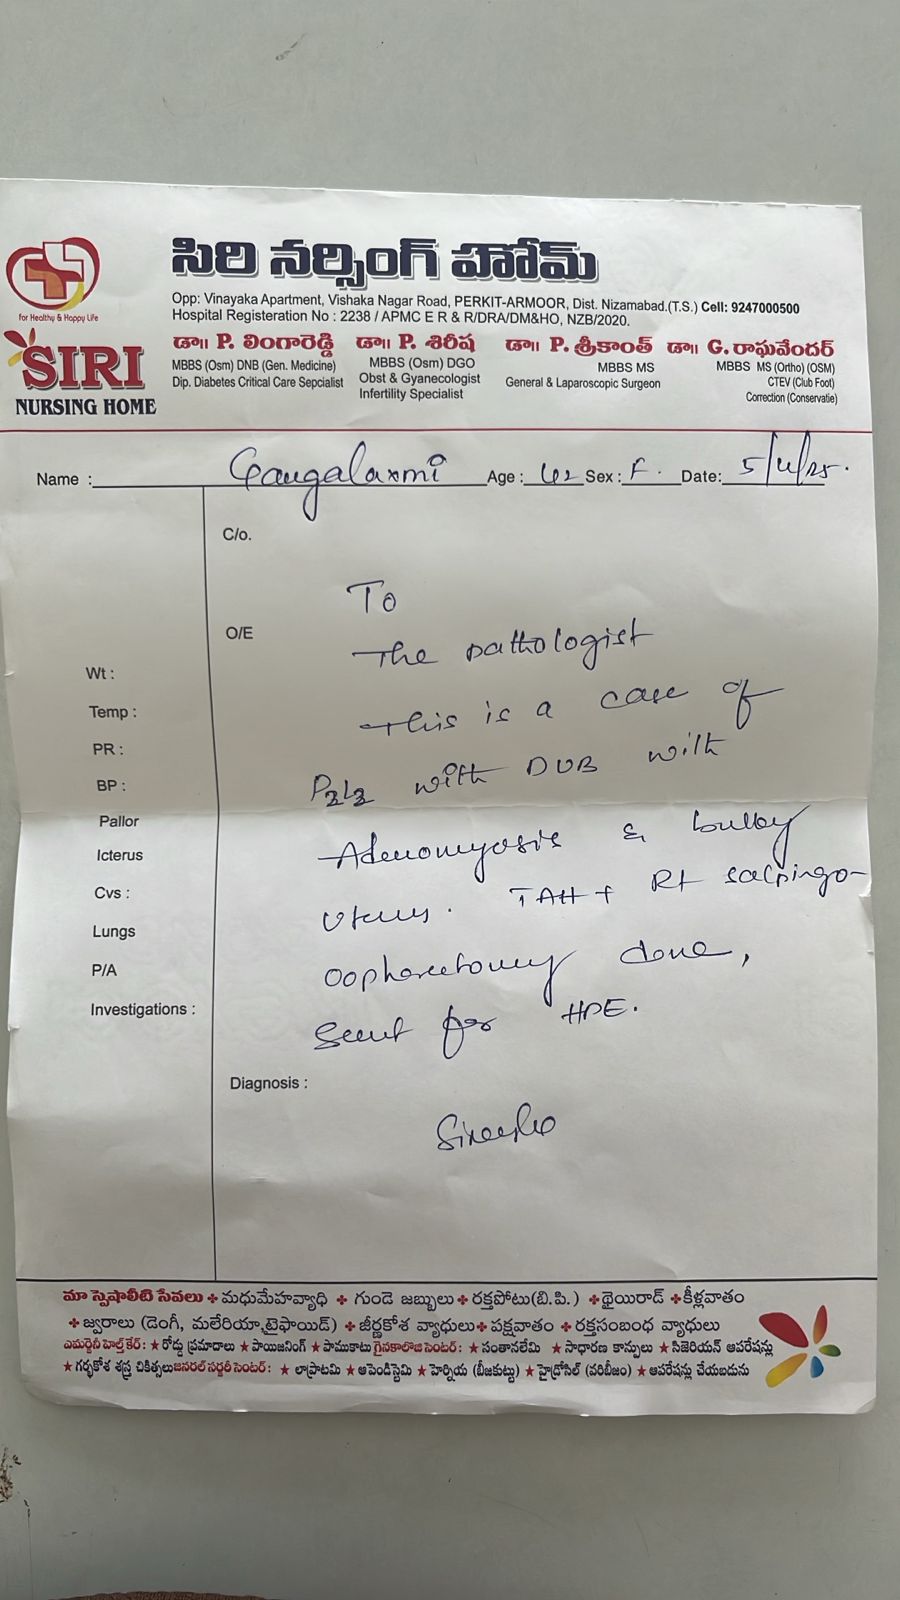 సిరి నర్సింగ్ హోమ్
for Healthy & Happy Life
SIRI
NURSING HOME
Opp: Vinayaka Apartment, Vishaka Nagar Road, PERKIT-ARMOOR, Dist. Nizamabad.(T.S.) Cell: 9247000500
Hospital Registeration No : 2238 / APMC E R & R/DRA/DM&HO, NZB/2020.
డా|| P. లింగారెడ్డి డా|| P. శిరీష డా|| P. శ్రీకాంత్ డా|| G. రాఘవేందర్
MBBS (Osm) DNB (Gen. Medicine) MBBS (Osm) DGO MBBS MS MBBS MS (Ortho) (OSM)
Dip. Diabetes Critical Care Sepcialist) Obst & Gyanecologist General & Laparoscopic Surgeon CTEV (Club Foot)
Infertility Specialist Correction (Conservatie)
Name : Gangalaxmi Age : 42 Sex : F. Date:
C/o.
To
O/E
The pathologist
Wt :
This is a case of
Temp :
PR :
P3L3 with DUB with
BP :
Pallor
Adenomyosis & bulky
Icterus
Uterus. TAH + Rt salpingo-
Cvs :
Lungs
oopherectomy done,
P/A
Sent for HPE.
Investigations :
Diagnosis :
మా స్పెషాలిటీ సేవలు + మధుమేహవ్యాధి + గుండె జబ్బులు + రక్తపోటు(బి.పి.) + థైయిరాడ్ + కీళ్లవాతం
+ జ్వరాలు (డెంగీ, మలేరియా,టైఫాయిడ్) + జీర్ణకోశ వ్యాధులు + పక్షవాతం + రక్తసంబంధ వ్యాధులు
ఎమర్జెనీ హెల్త్ కేర్: ★ రోడ్డు ప్రమాదాలు ★ పాయిజనింగ్ ★ పాముకాటు గైనకాలొజి సెంటర్: ★ సంతానలేమి ★ సాధారణ కాన్పులు ★ సిజెరియన్ ఆపరేషన్లు
★ గర్భకోశ శస్త్ర చికిత్సలు జనరల్ సర్జరీ సెంటర్: ★ లాప్రాటమి ★ ఆపెండిస్టెమి ★ హెర్నియ (బీజకుట్టు) ★ హైడ్రోసిల్ (వరిబీజం) ★ ఆపరేషన్లు చేయబడును